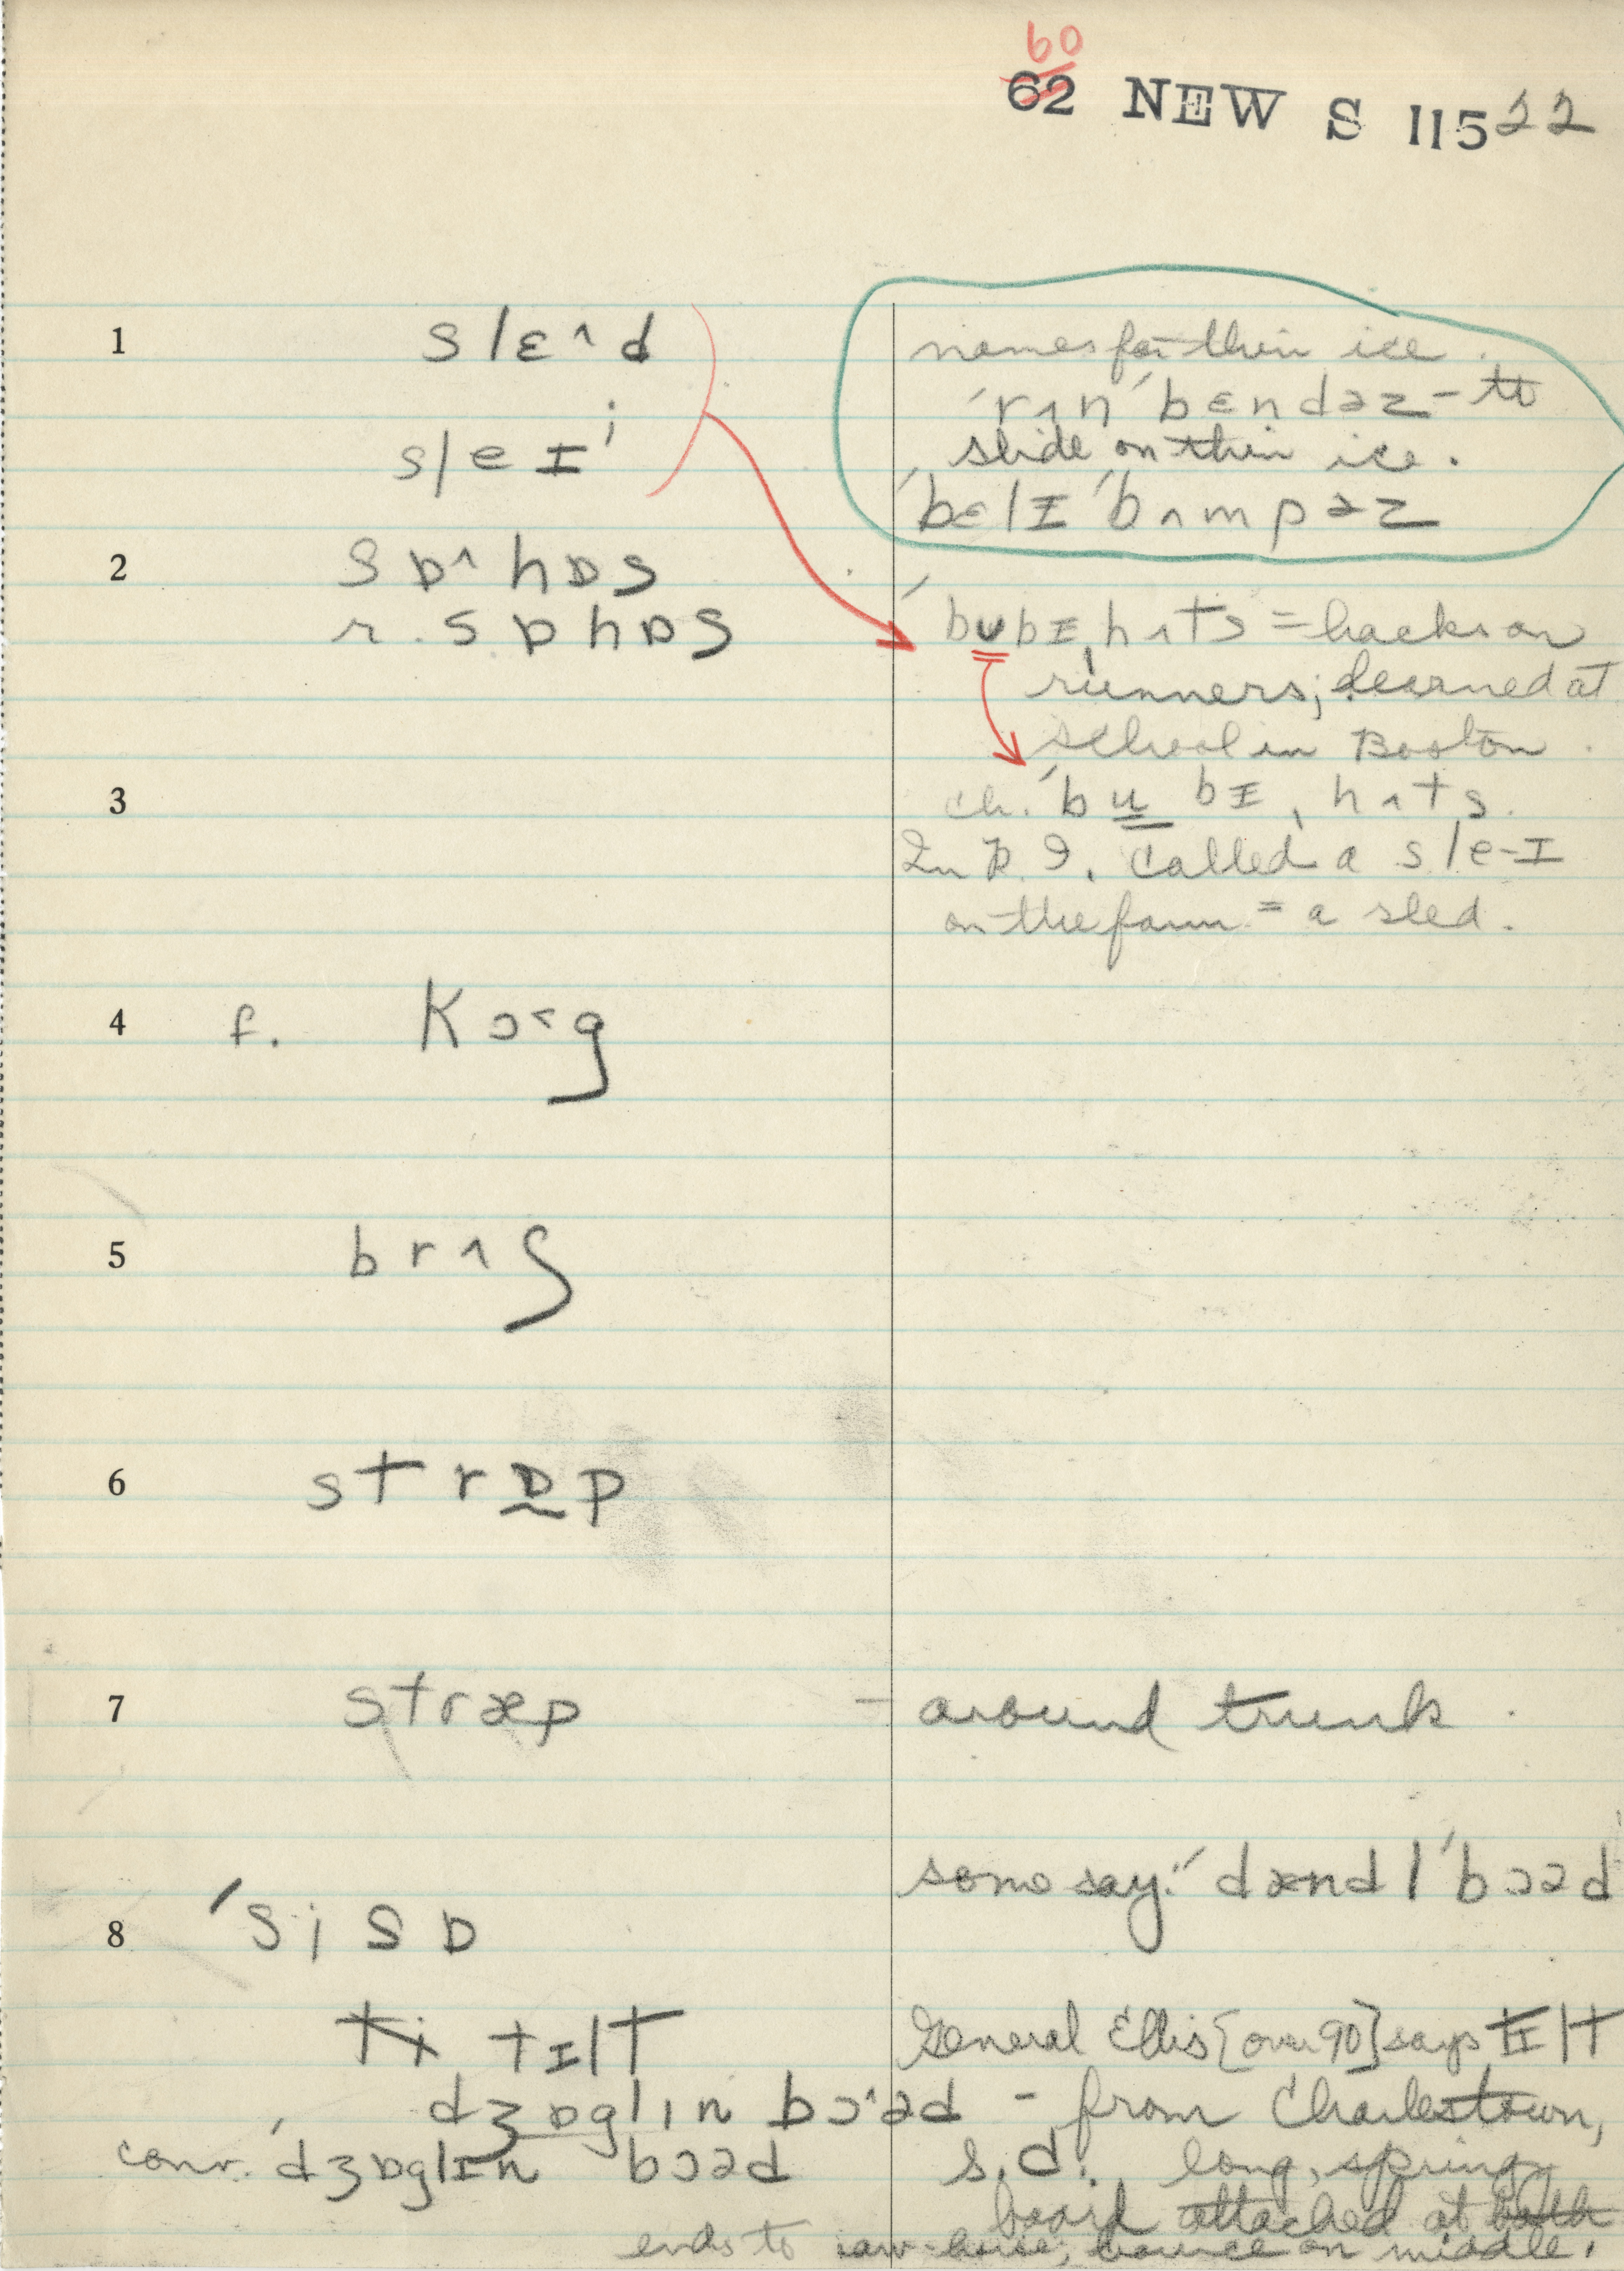 60
62 NEW S 115 22
1 slɛ^d
sleɪⁱ
names for thin ice.
ˈrʌnˈbɛndəz – to
slide on thin ice.
ˈbɛlɪˈbʌmpəz
2 sɒ^hɒs
r. sɒhɒs
ˈbʊbɪˌhʌts = hacks on
runners; learned at
school in Boston.
3 ch. ˈbubɪˌhʌts.
In R. I. called a sleɪ
on the farm = a sled.
4 f. kɔ˂g
5 brʌʃ
6 strɒp
7 stræp – around trunk.
some say: ˈdændlˈbɔəd
8 ˈsisɒ
ti tɪlt
General Ellis [over 90] says tɪlt
dʒɒglɪn bɔ^əd – from Charlestown,
conv. ˈdʒɒglɪn bɔəd
S.C. long, springy
board attached at both
ends to saw-horse; bounce on middle.